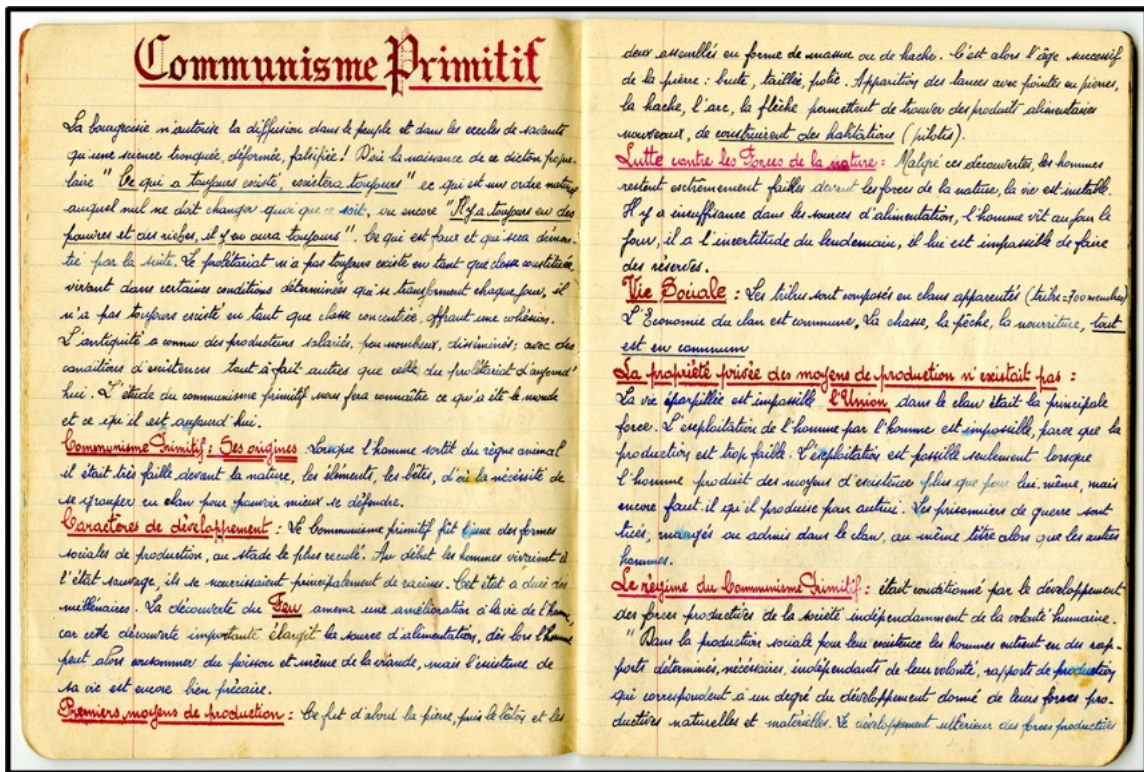 Communisme Primitif
La bourgeoisie n'autorise la diffusion dans le peuple et dans les écoles de savants
qu'une science tronquée, déformée, falsifiée! D'où la naissance de ce dicton popu-
laire "Ce qui a toujours existé, existera toujours" ce qui est un ordre naturel
auquel nul ne doit changer quoi que ce soit, ou encore "Il y a toujours eu des
pauvres et des riches, il y en aura toujours". Ce qui est faux et qui sera démon-
tré par la suite. Le prolétariat n'a pas toujours existé en tant que classe constituée,
vivant dans certaines conditions déterminées qui se transforment chaque jour, il
n'a pas toujours existé en tant que classe concentrée, offrant une cohésion.
L'antiquité a connu des producteurs salariés, peu nombreux, disséminés; avec des
conditions d'existences tout à fait autres que celle du prolétariat d'aujourd'
hui. L'étude du communisme primitif nous fera connaître ce qu'a été le monde
et ce qu'il est aujourd'hui.
Communisme Primitif: Ses origines: Lorsque l'homme sortit du règne animal
il était très faible devant la nature, les éléments, les bêtes, d'où la nécessité de
se grouper en clan pour pouvoir mieux se défendre.
Caractères de développement: Le Communisme primitif fût l'une des formes
sociales de production, au stade le plus reculé. Au début les hommes vivaient à
l'état sauvage, ils se nourrissaient principalement de racines. Cet état a duré des
millénaires. La découverte du Feu amena une amélioration à la vie de l'homme,
car cette découverte importante élargit la source d'alimentation, dès lors l'homme
peut alors consommer du poisson et même de la viande, mais l'existence de
sa vie est encore bien précaire.
Premiers moyens de production: Ce fut d'abord la pierre, puis le bâton et les
deux assemblés en forme de massue ou de hache. C'est alors l'âge successif
de la pierre: brute, taillée, polie. Apparition des lances avec pointes en pierres,
la hache, l'arc, la flèche permettent de trouver des produits alimentaires
nouveaux, de construirent des habitations (pilotes).
Lutte contre les Forces de la nature: Malgré ces découvertes, les hommes
restent extrêmement faibles devant les forces de la nature, la vie est instable.
Il y a insuffisance dans les sources d'alimentation, l'homme vit au jour le
jour, il a l'incertitude du lendemain, il lui est impossible de faire
des réserves.
Vie Sociale: Les tribus sont composés en clans apparentés (tribu=700 membres)
L'Economie du clan est commune, La chasse, la pêche, la nourriture, tout
est en commun
La propriété privée des moyens de production n'existait pas:
La vie éparpillée est impossible l'Union dans le clan était la principale
force. L'exploitation de l'homme par l'homme est impossible, parce que la
production est trop faible. L'exploitation est possible seulement lorsque
l'homme produit des moyens d'existence plus que pour lui même, mais
encore faut il qu'il produise pour autrui. Les prisonniers de guerre sont
tués, mangés ou admis dans le clan, au même titre alors que les autres
hommes.
Le régime du Communisme Primitif: était conditionné par le développement
des forces productives de la société indépendamment de la volonté humaine.
"Dans la production sociale pour leur existence les hommes entrent en des rap-
ports déterminés, nécessaires, indépendants de leur volonté, rapports de production
qui correspondent à un degré du développement donné de leurs forces pro-
ductives naturelles et matérielles. Le développement ultérieur des forces productives